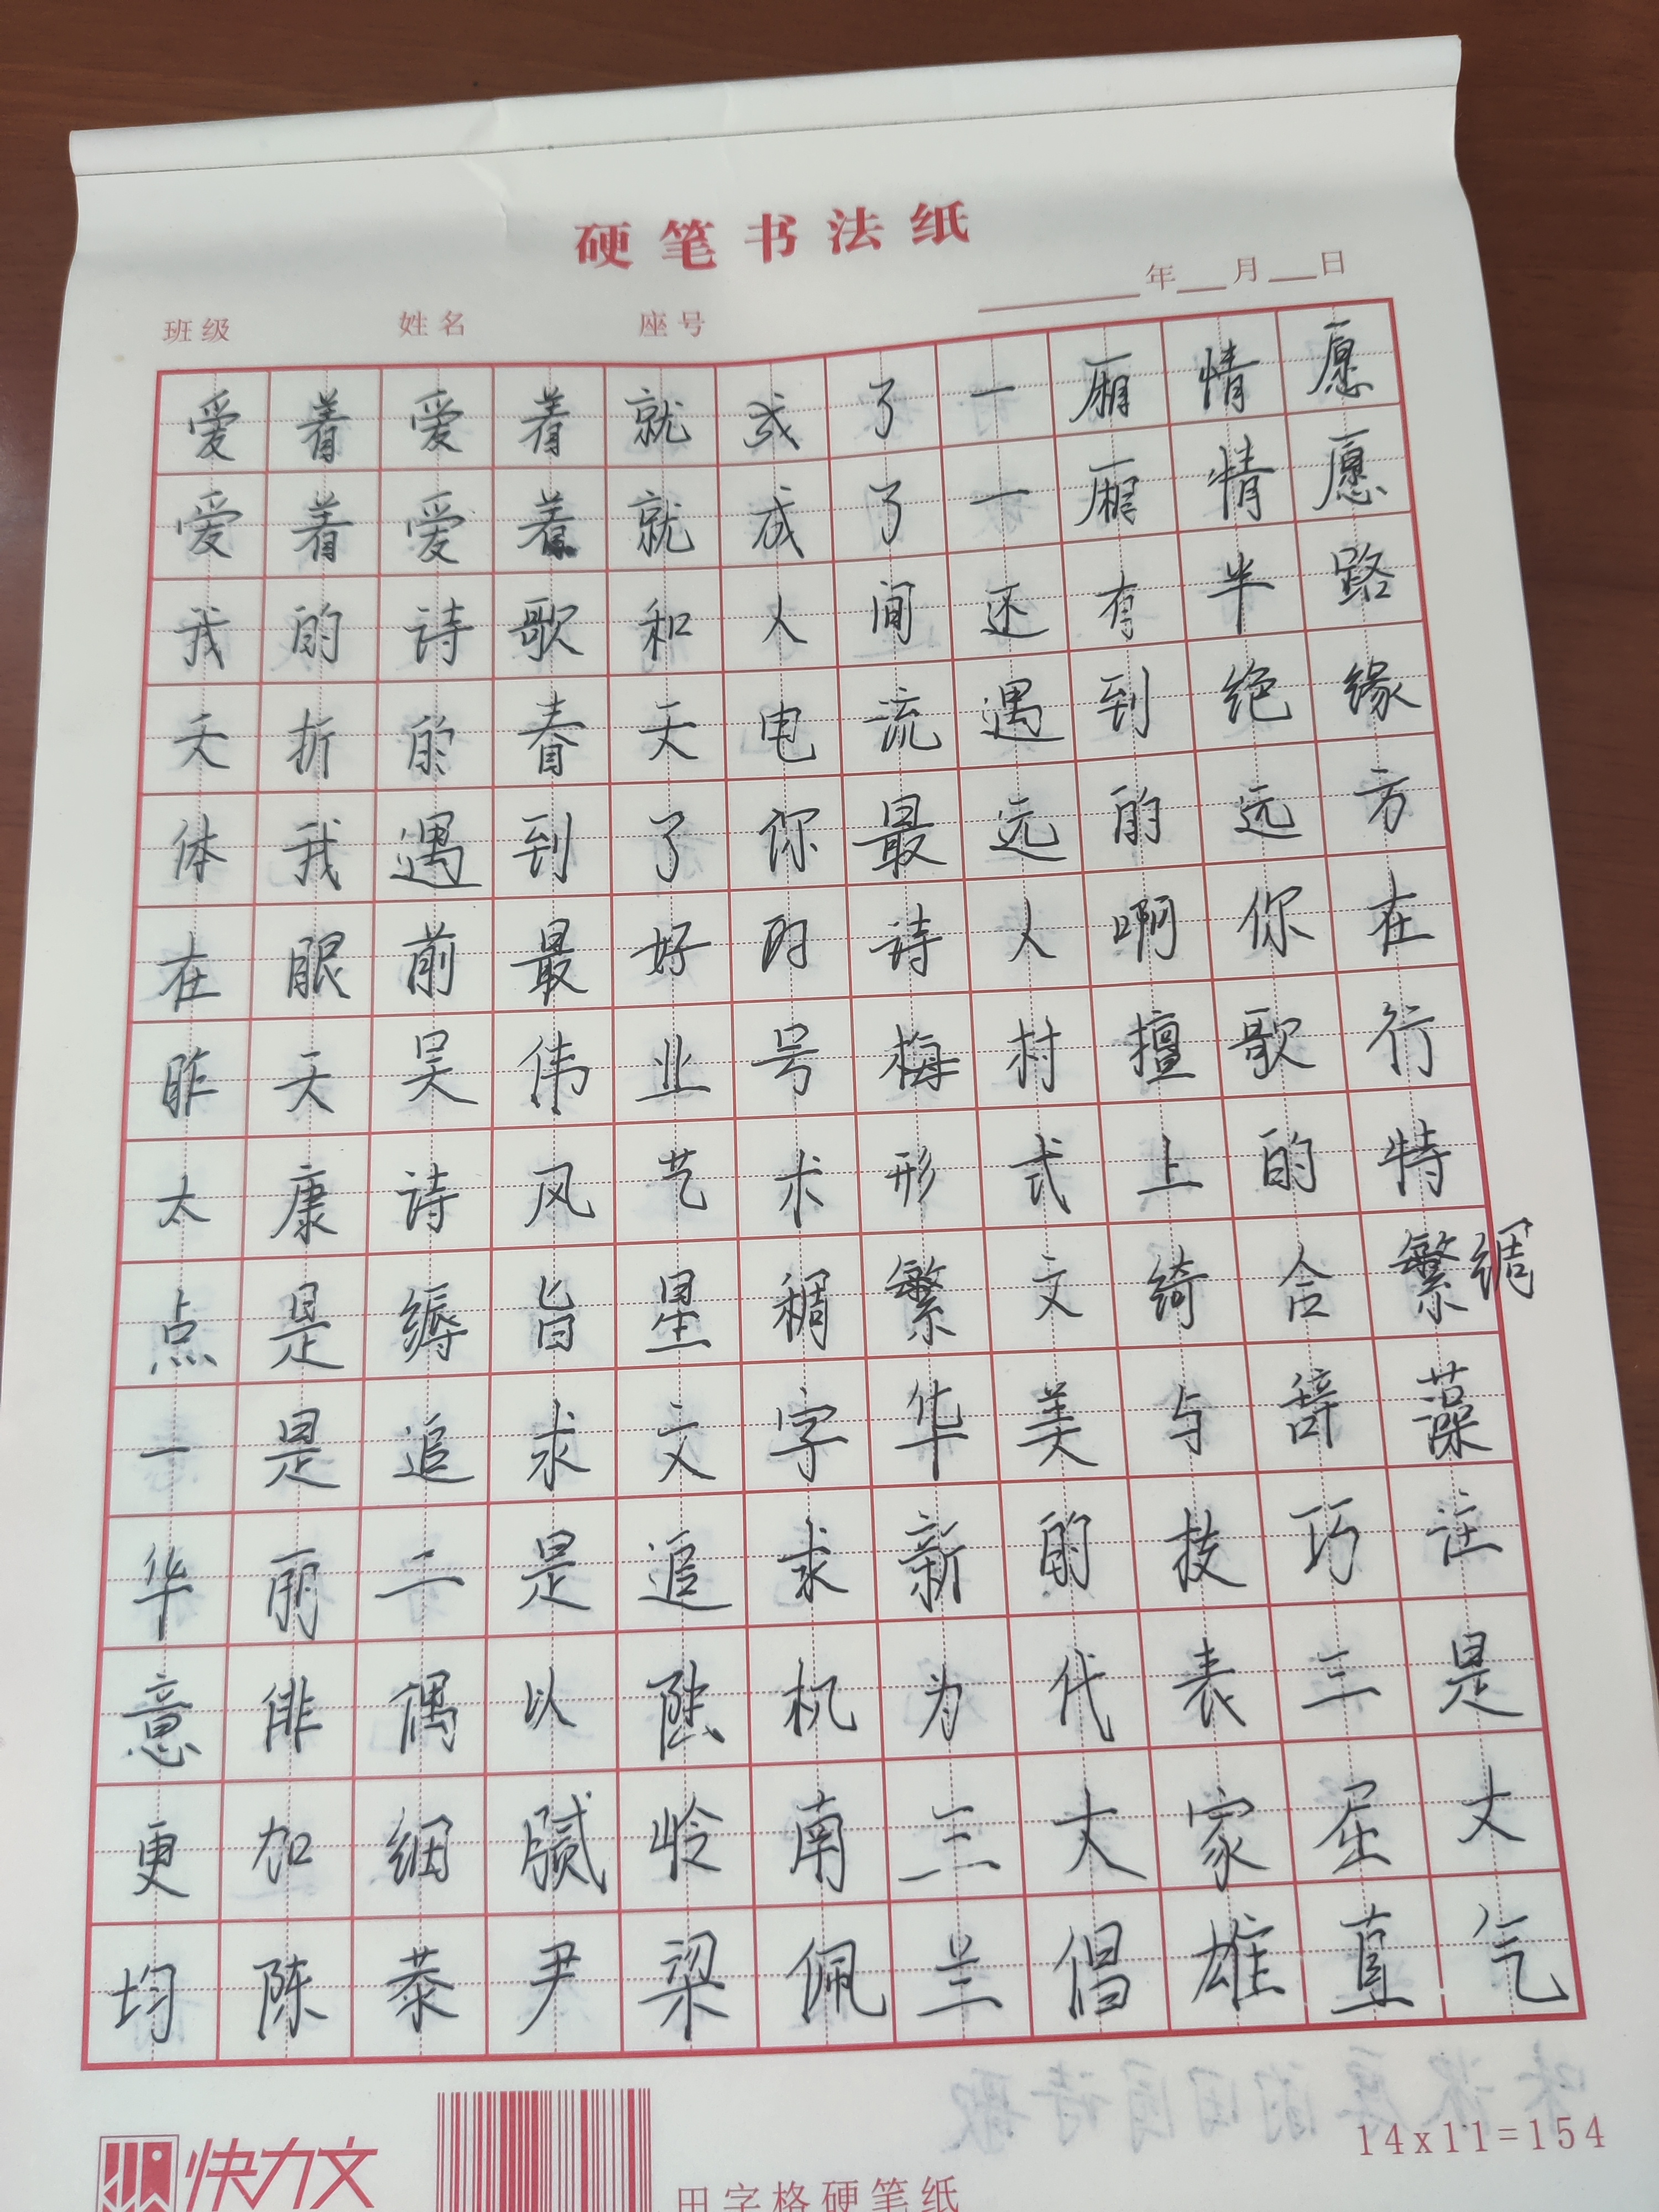 硬笔书法纸
年 月 日
班级 姓名 座号
爱着爱着就成了一厢情愿
爱着爱着就成了一厢情愿
我的诗歌和人间还有半路
夭折的春天电流遇到绝缘
体我遇到了你最远的远方
在眼前最好的诗人啊你在
昨天吴伟业号梅村擅歌行
太康诗风艺术形式上的特
点是缛旨星稠繁文绮合繁绸
一是追求文字华美与辞藻
华丽二是追求新的技巧注
意俳偶以陆机为代表三是
更加细腻岭南三大家屈大
均陈恭尹梁佩兰倡雄直气
快力文
田字格硬笔纸
14x11=154